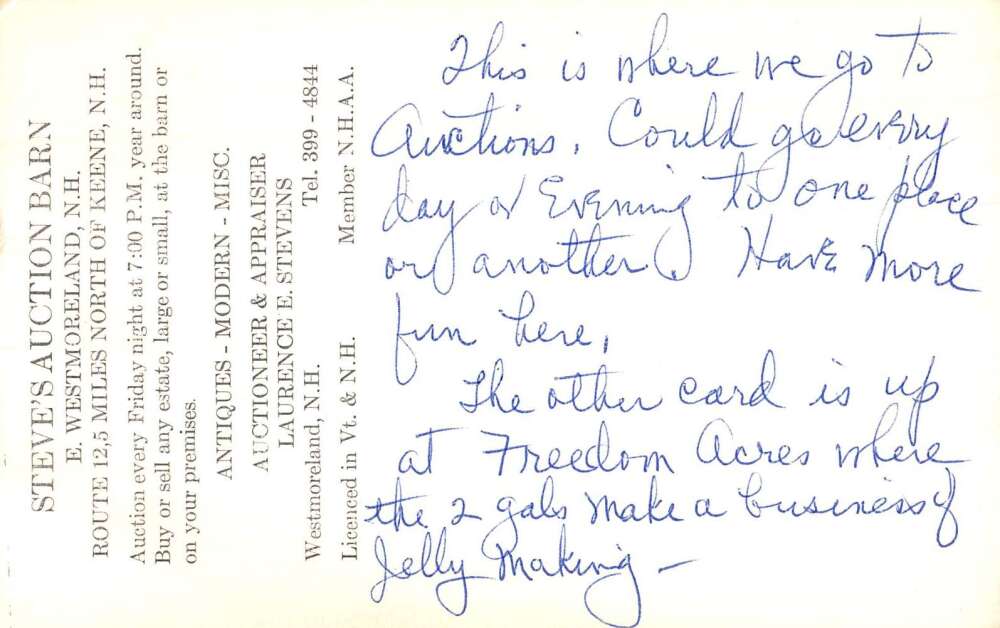 STEVE'S AUCTION BARN
E. WESTMORELAND, N.H.
ROUTE 12, 5 MILES NORTH OF KEENE, N.H.
Auction every Friday night at 7:00 P.M. year around.
Buy or sell any estate, large or small, at the barn or
on your premises.
ANTIQUES - MODERN - MISC.
AUCTIONEER & APPRAISER
LAURENCE E. STEVENS
Westmoreland, N.H. Tel. 399 - 4844
Licenced in Vt. & N.H. Member N.H.A.A.
This is where we go to
Auctions. Could go every
day or Evening to one place
or another. Have more
fun here,
The other card is up
at Freedom Acres where
the 2 gals make a business of
Jelly Making –